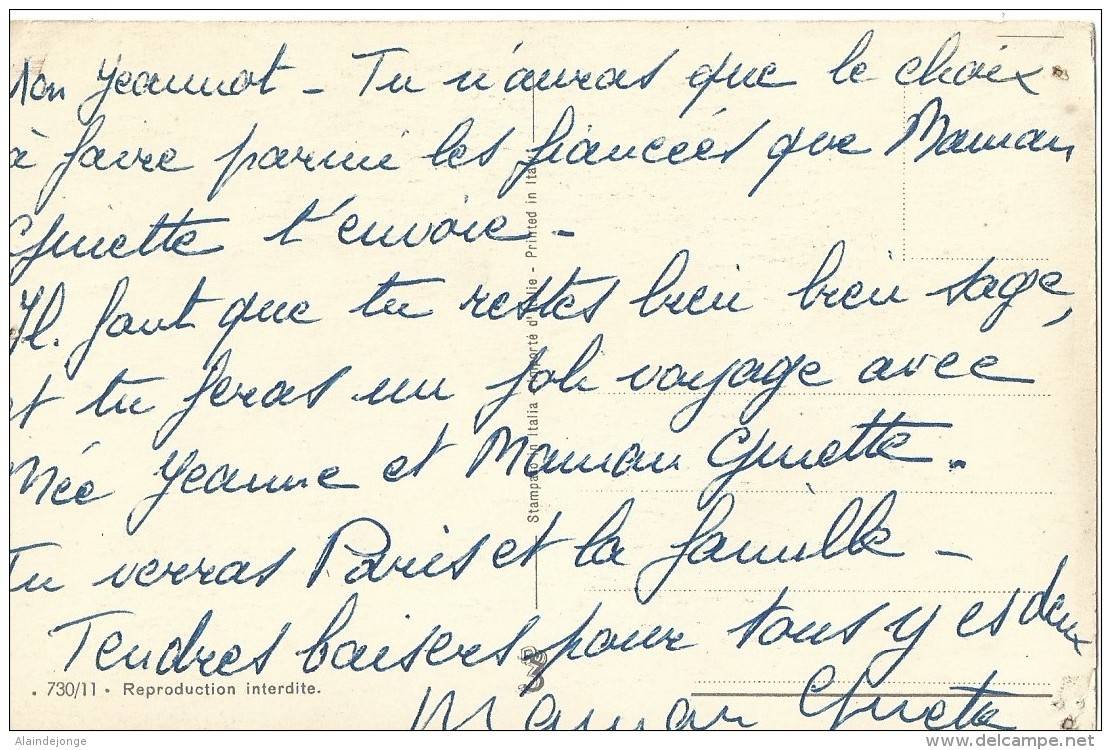 Mon Jeannot - Tu n'auras que le choix
à faire parmi les fiancées que Maman
Ginette t'envoie -
Il faut que tu restes bien bien sage,
et tu feras un joli voyage avec
Mée Jeanne et Maman Ginette.
Tu verras Paris et la famille -
Tendres baisers pour tous y es deux
Maman Ginette
Stampato in Italia - Importé d'Italie - Printed in Ita
. 730/11 • Reproduction interdite.
Alaindejonge
delcampe.net